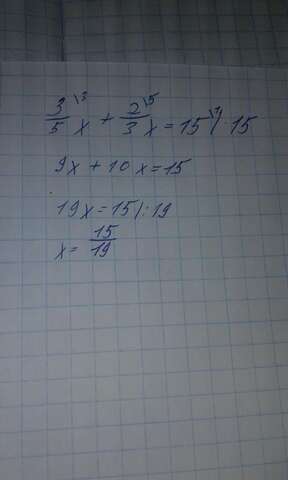 3/5 \3 x + 2/3 \5 x = 15 \1 | · 15
9x + 10x = 15
19x = 15 | : 19
x = 15/19